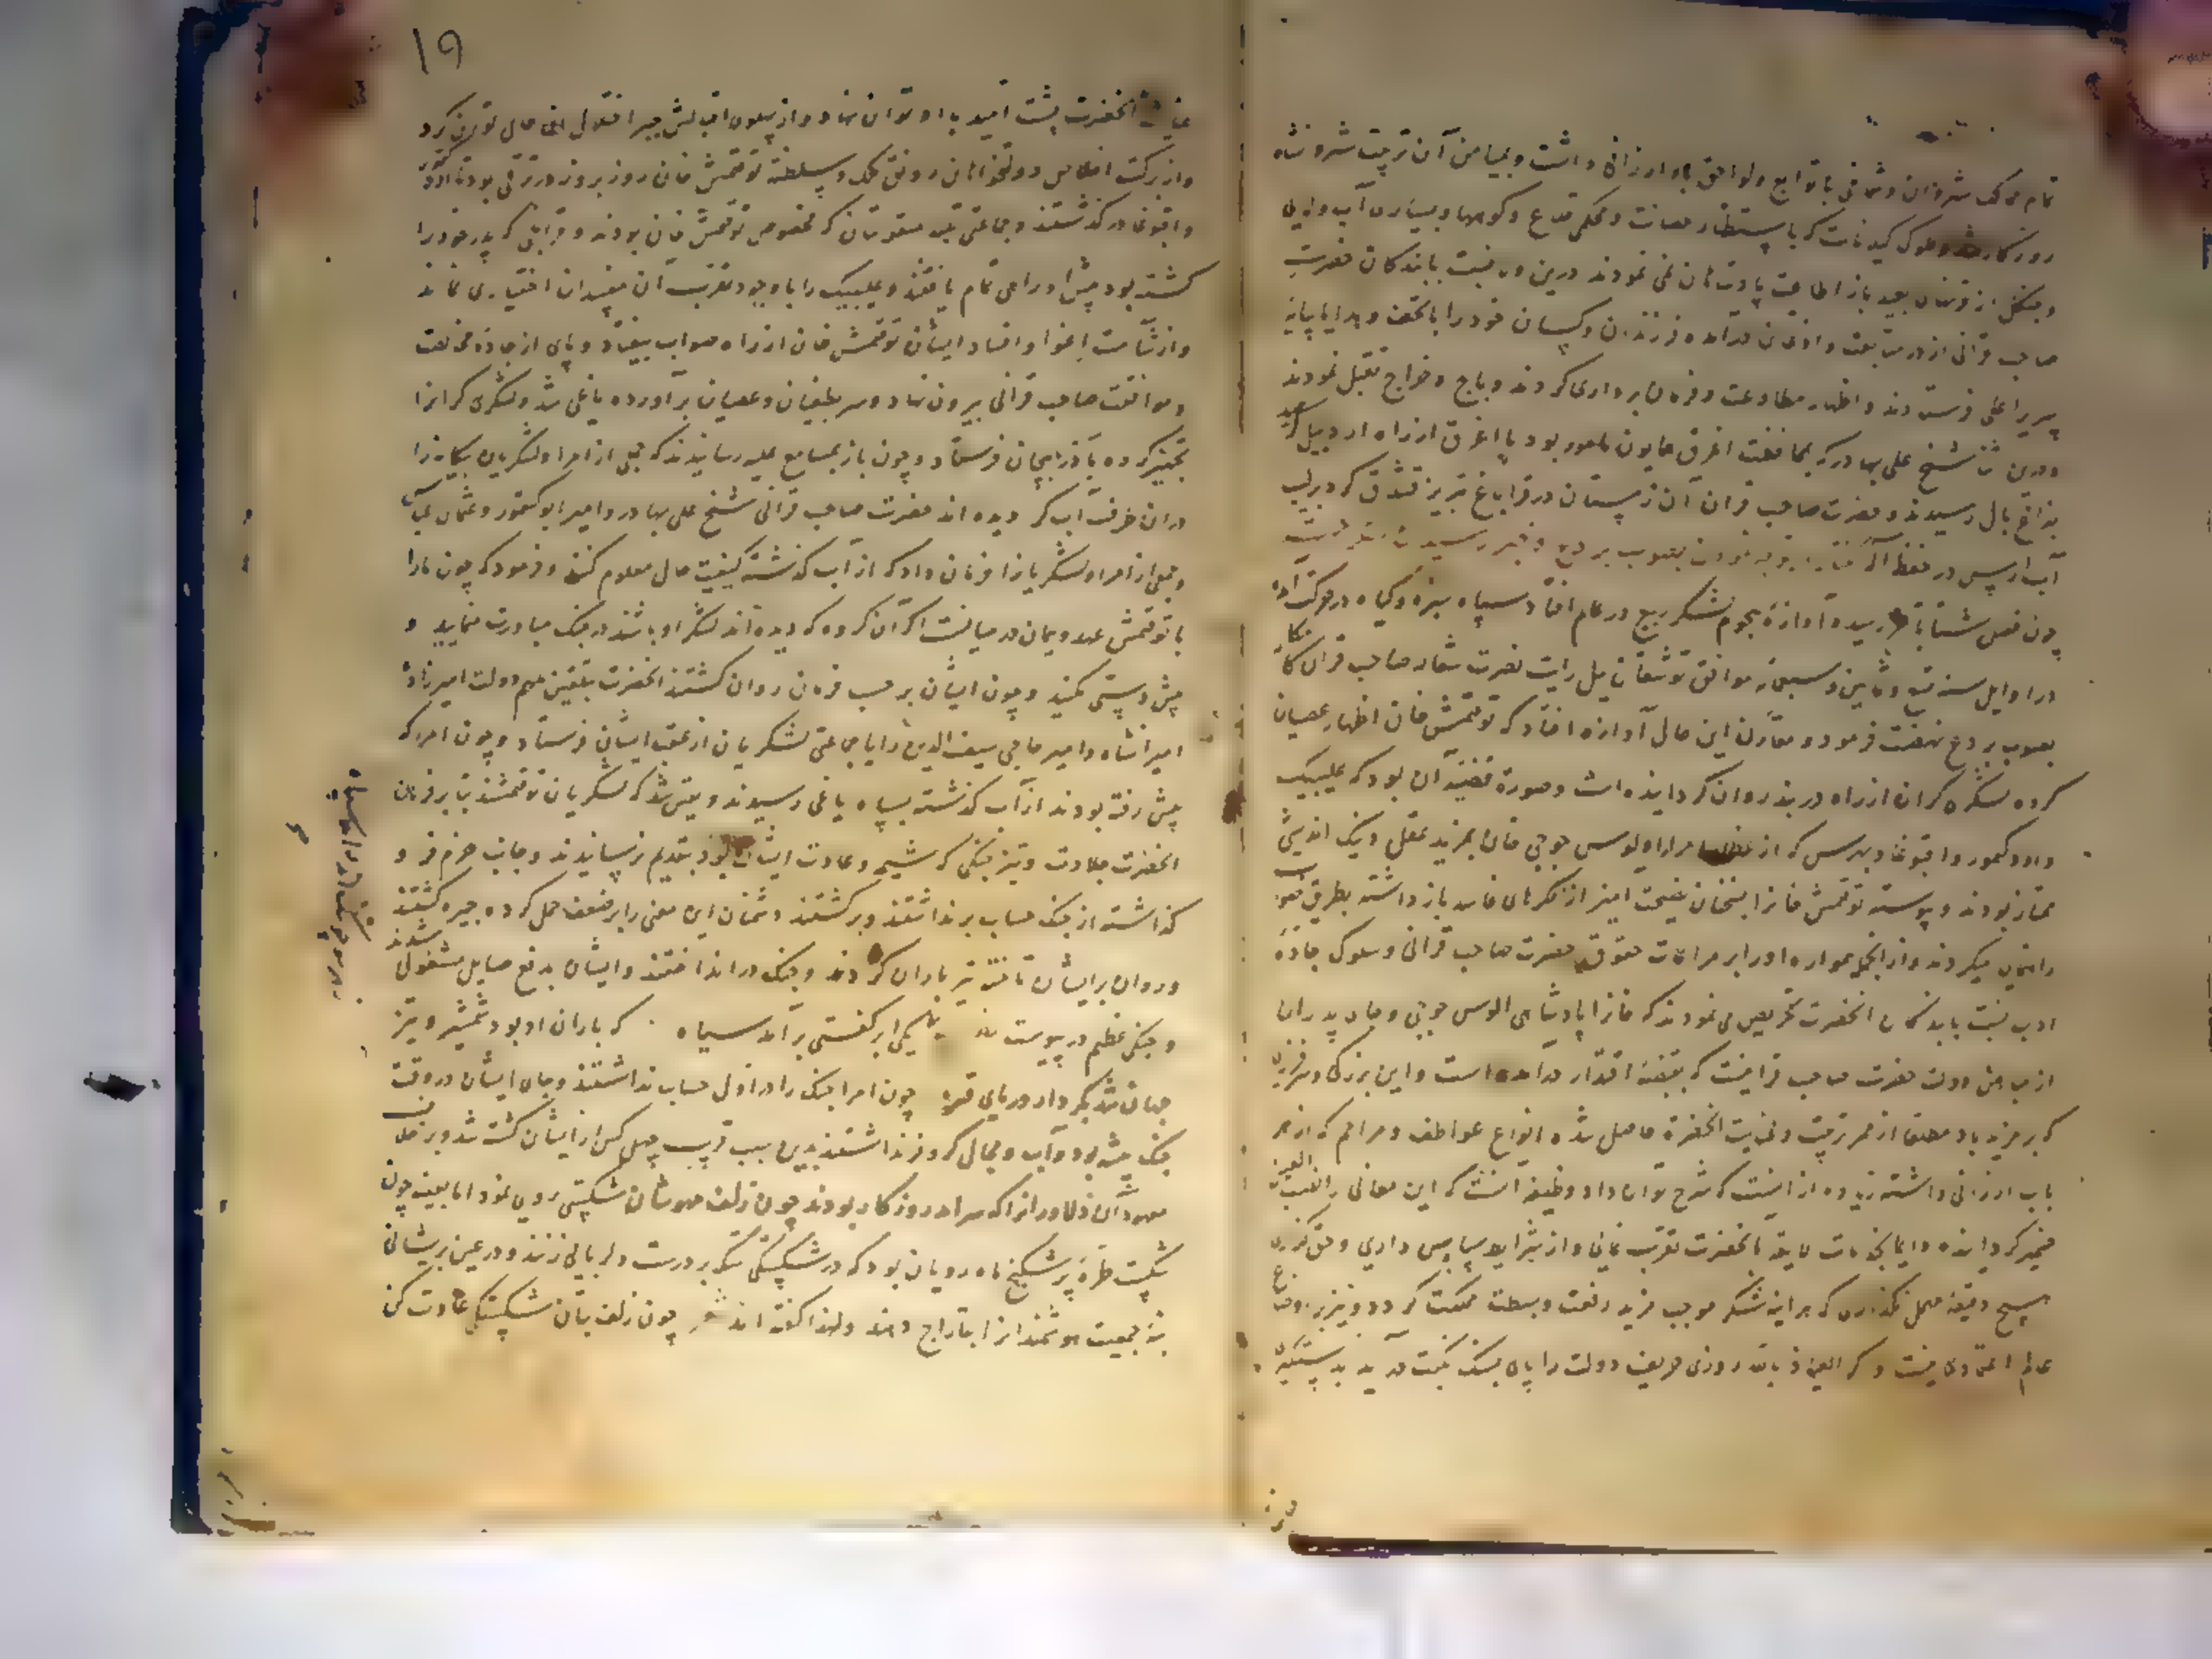 تمام ممالک شروان و شماخی با توابع و لواحق باو ارزانی داشت و بمیامن آن تربیت شروانشاه
روزگار شد و ملوک گیلانات که باستظهار حصانت و محکمی قلاع و کوهها و بسیاری آب و لای
و جنگل از زمان بعید باز اطاعت پادشاهان نمی نمودند درین ولا نسبت با بندگان حضرت
صاحب قرانی از در متابعت و اذعان درآمده فرزندان و کسان خود را با تحف و هدایا بپایه
سریر اعلی فرستادند و اظهار مطاوعت و فرمان برداری کردند و باج و خراج تقبل نمودند
و درین اثنا شیخ علی بهادر که بمحافظت اغرق همایون مامور بود با اغرق از راه اردبیل
بفراغ بال رسیدند و حضرت صاحب قران آن زمستان در قراباغ تبریز قشلاق که در لب
آب ارس در حفظ اله
چون فصل شتا بآخر رسید و آوازه هجوم لشکر ربیع در عالم افتاد سپاه سبزه و گیاه در حرکت آمد
در اوایل سنه تسع و ثمانین و سبعمایه موافق توشقان ییل رایت نصرت شعار صاحب قران
بصوب بردع نهضت فرمود و مقارن این حال آوازه افتاد که توقتمش خان اظهار عصیان
کرده لشکر گران از راه دربند روان گردانیده است و صورة قضیه آن بود که علیبیک
و اوروکتمور و اقبوغا و بهرس که از عظما امراء اولوس جوجی خان بمزید عقل و نیک اندیشی
ممتاز بودند و پیوسته توقتمش خانرا بسخنان نصیحت امیز از فکرهای فاسد باز داشته بطریق
راهنمایی میکردند و از انجمله همواره او را بر مراعات حقوق حضرت صاحب قرانی و سلوک جاده
ادب نسبت با بندگان انحضرت تحریص می نمودند که خانرا پادشاهی الوس جوجی و جای پدران
از میامن دولت حضرت صاحب قرانیست که بقبضه اقتدار درآمده است و این بزرگی و سرفرازی
که بر مزید باد مطلقا از ثمر تربیت و عنایت انحضرة حاصل شده انواع عواطف و مراحم که از هر
باب ارزانی داشته زیاده از انست که شرح توان داد وظیفه انست که این معانی را نصب العین
ضمیر گردانیده دایما بخدمات لایقه بانحضرت تقرب نمائی و از شرایط سپاس داری و حق گزاری
هیچ دقیقه مهمل نگذاری که هراینه شکر موجب مزید رفعت و بسطت مملکت گردد و نیز بر اوضاع
عالم اعتمادی نیست و گر العیاذ بالله روزی حریف دولت را پای بسنگ نکبت درآید بدستگیری
۱۹
عنایت انحضرت پشت امید باو توان نهاد و از پهلوی اقبالش جبر اختلال ان حال توان کرد
و از برکت اخلاص دولتخواهان رونق ملک و سلطنة توقتمش خان روز بروز در ترقی بود تا اوروکتمور
و اقبوغا درگذشتند و جماعتی که مخصوص توقتمش خان بودند و که پدر خود را
کشته بود پیش او راهی تمام یافتند و علیبیک را با وجود تقرب آن مفسدان اختیاری نماند
و از شآمت اغوا و افساد ایشان توقتمش خان از راه صواب بیفتاد و پای از جاده مخالصت
و موافقت صاحب قرانی بیرون نهاد و سر بطغیان و عصیان برآورده یاغی شد و لشکری گرانرا
تجهیز کرده بآذربیجان فرستاد و چون باز بمسامع علیه رسانیدند که خیلی از امرا و لشکریان بیگانه را
دران طرف آب کر دیده اند حضرت صاحب قرانی شیخ علی بهادر و امیر ایوکتمور و عثمان عباس
و جمعی از امرا و لشکریانرا فرمان داد که از آب گذشته کیفیت حال معلوم کنند و فرمود که چون مارا
با توقتمش عهد و پیمان در میانست اگر آن گروه که دیده اند لشکر او باشند در جنگ مبادرت منمایید و
پیش دستی مکنید و چون ایشان بر حسب فرمان روان گشتند انحضرت بتلقین ملهم دولت امیرزاده
امیرانشاه و امیر حاجی سیف الدین را با جماعتی لشکریان از عقب ایشان فرستاد و چون امرا که
پیش رفته بودند از آب گذشته بسپاه یاغی رسیدند و یقین شد که لشکریان توقتمشند بنا بر فرمان
انحضرت جلادت و تیزجنگی که شیمه و عادت ایشان بود بتقدیم نرسانیدند و جانب حزم فرو
گذاشته از جنگ حساب برنداشتند و برگشتند دشمنان این معنی را بر ضعف حمل کرده چیره گشتند
و روان بر ایشان تاخته تیر باران کردند و جنگ درانداختند و ایشان بدفع صایل مشغول شدند
و جنگی عظیم درپیوست یکی ابر گفستی برآمد سیاه . که باران او بود شمشیر و تیر
جهان شد بکردار دریای قیر چون امرا جنگ را در اول حساب نداشتند و جای ایشان در وقت
جنگ بیشه بود و آب و مجالی کر و فر نداشتند بدین سبب قریب چهل کس از ایشان کشته شد و بر خلاف
معهود آن دلاورانرا که سرامد روزگار بودند چون زلف مهوشان شکستی روی نمود اما بعینه چون
شکست طره پر شکنج ماه رویان بود که در شکستگی لشکر درست دلربایی زنند و در عین پریشانی
بنه جمعیت هوشمندانرا بتاراج دهند و لهذا گفته اند شعر چون زلف بتان شکستگی عادت کن